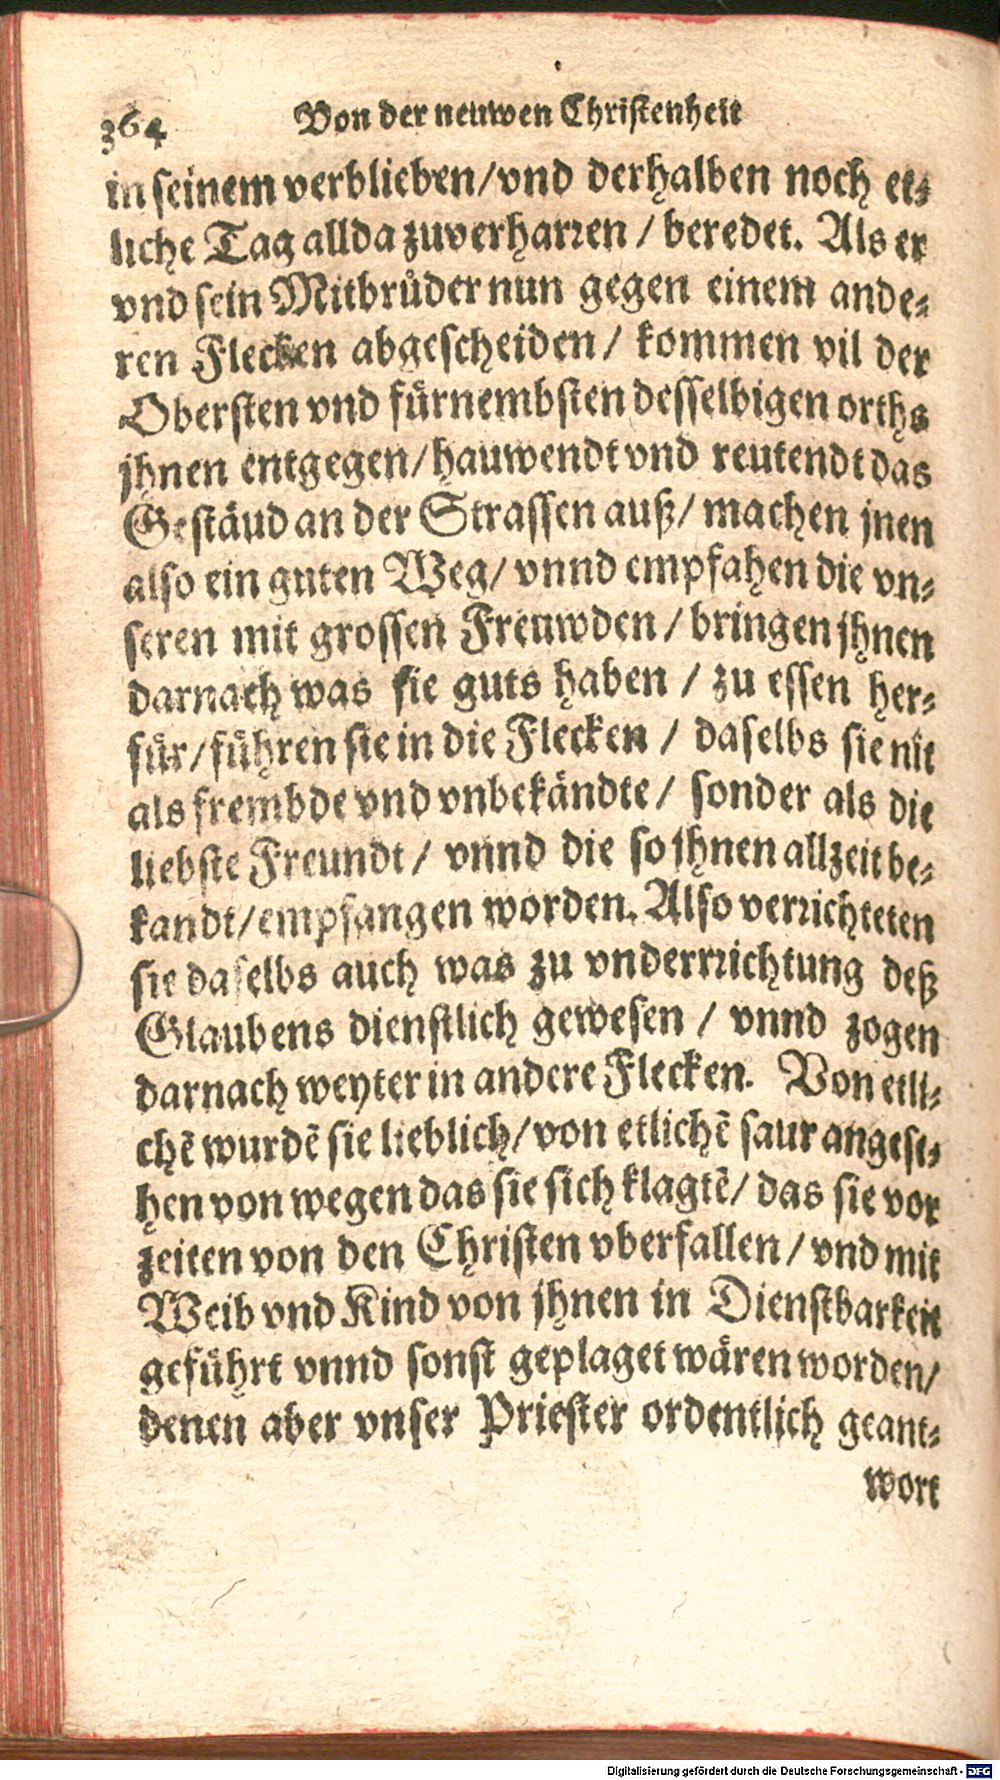 364 Von der neuwen Christenheit
in seinem verblieben/vnd derhalben noch et⸗
liche Tag allda zuverharꝛen / beredet. Als er
vnd sein Mitbruͤder nun gegen einem ande⸗
ren Flecken abgescheiden / kommen vil der
Obersten vnd fuͤrnembsten desselbigen orths
jhnen entgegen/hauwendt vnd reutendt das
Gestaͤud an der Strassen auß/ machen jnen
also ein guten Weg/ vnnd empfahen die vn⸗
seren mit grossen Freuwden / bringen jhnen
darnach was sie guts haben / zu essen her⸗
fuͤr/fuͤhren sie in die Flecken / daselbs sie nit
als frembde vnd vnbekaͤndte / sonder als die
liebste Freundt / vnnd die so jhnen allzeit be⸗
kandt/empfangen worden. Also verꝛichteten
sie daselbs auch was zu vnderrꝛichtung deß
Glaubens dienstlich gewesen / vnnd zogen
darnach weyter in andere Flecken. Von etli⸗
chẽ wurdẽ sie lieblich/von etlichẽ saur angese⸗
hen von wegen das sie sich klagtẽ/ das sie vor
zeiten von den Christen vberfallen / vnd mit
Weib vnd Kind von jhnen in Dienstbarkeit
gefuͤhrt vnnd sonst geplaget waͤren worden/
denen aber vnser Priester ordentlich geant⸗
wort
Digitalisierung gefördert durch die Deutsche Forschungsgemeinschaft - DFG